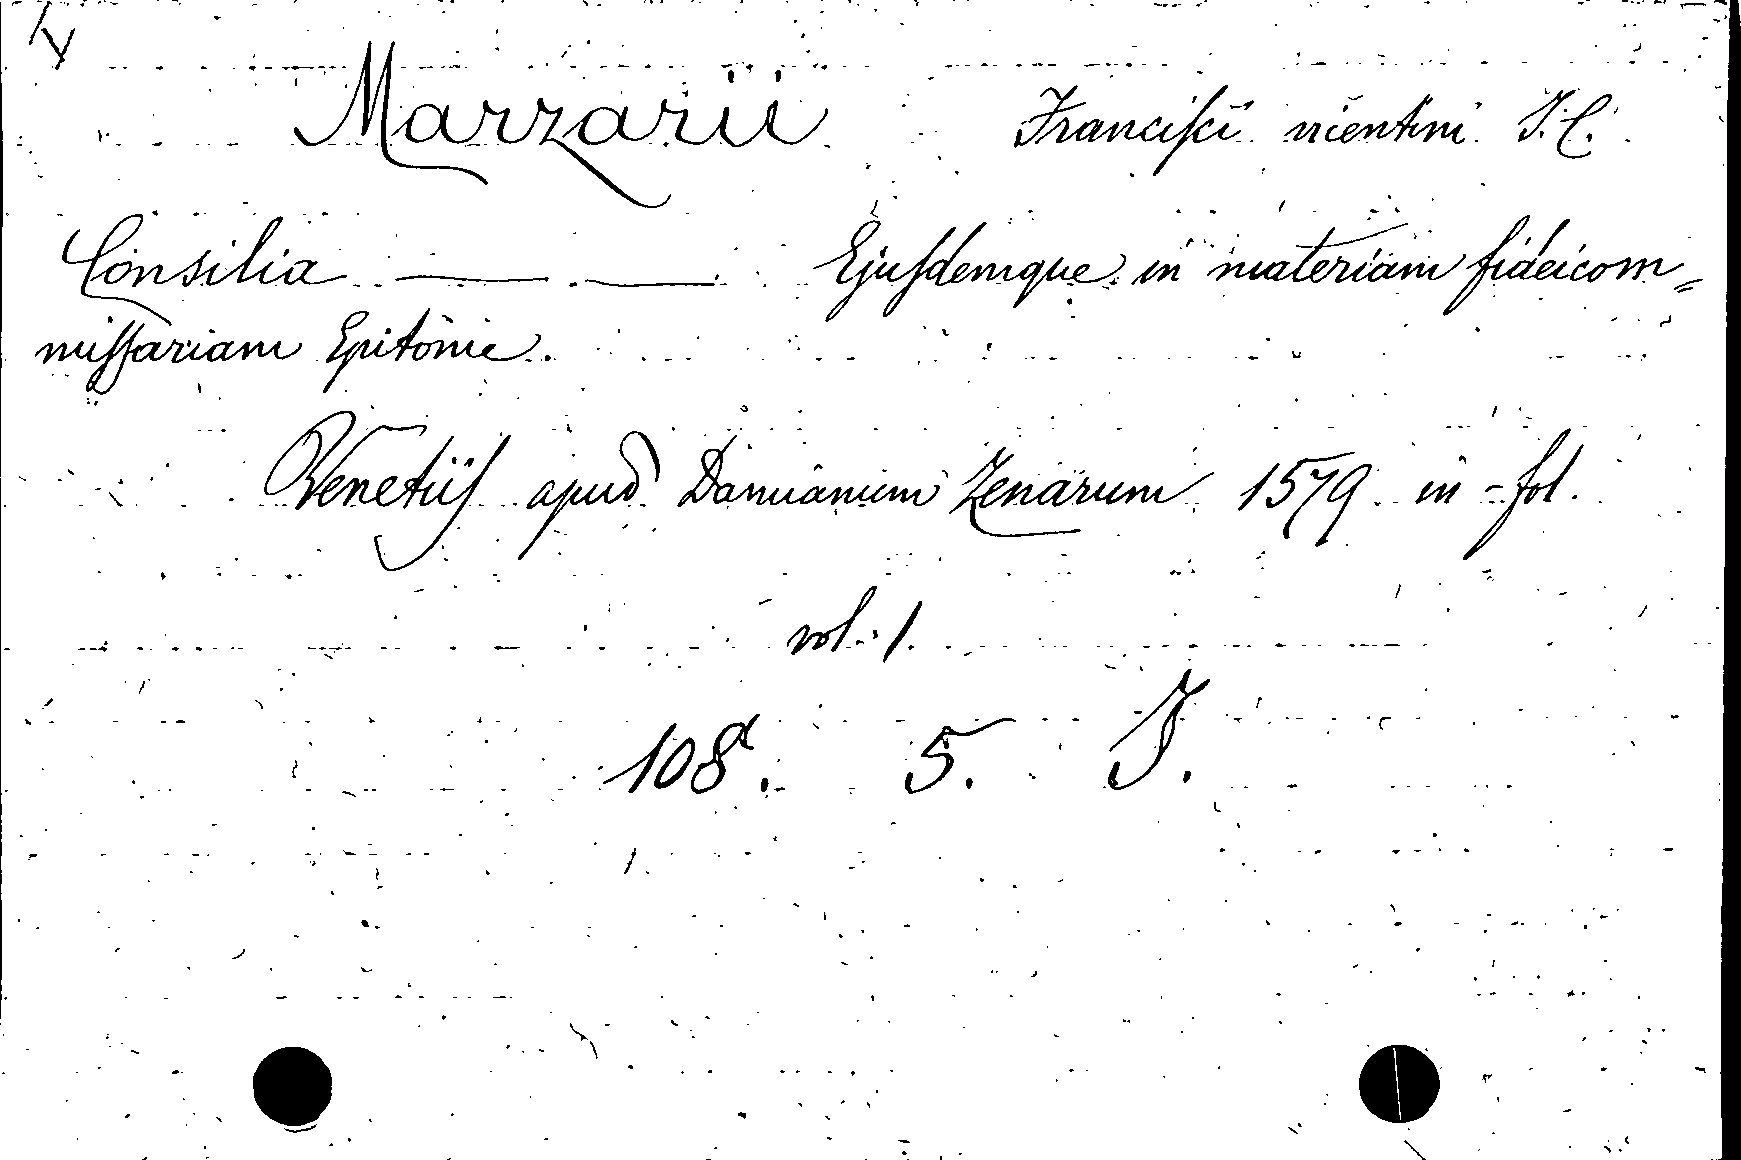 Marzarii Franciſci vicentini J. C.
Consilia —— —— Ejuſdemque in materiam fideicom=
miſſariam Epitome.
Venetiiſ apud Damianum Zenarum 1579 in-fol.
vol. 1.
108. 5. J.